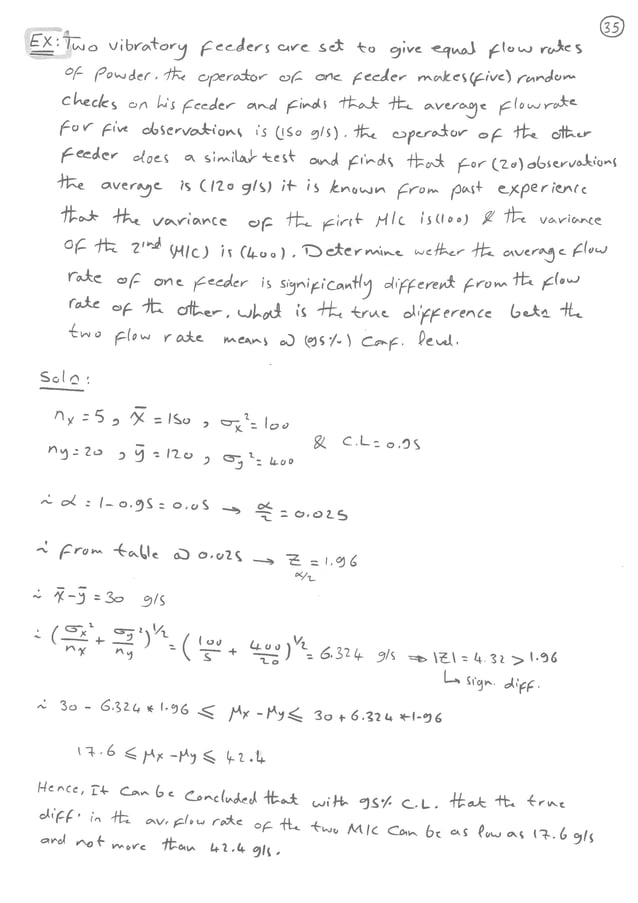 35
Ex: Two vibratory feeders are set to give equal flow rates
of Powder. the operator of one feeder makes (five) random
checks on his feeder and finds that the average flowrate
for five observations is (150 g/s). the operator of the other
feeder does a similar test and finds that for (20) observations
the average is (120 g/s) it is known from past experience
that the variance of the first M/C is (100) & the variance
of the 2nd (M/C) is (400). Determine wether the average flow
rate of one feeder is significantly different from the flow
rate of the other. what is the true difference betn the
two flow rate means @ (95%) Conf. level.
Soln:
nx = 5, x̄ = 150, σx² = 100
& C.L = 0.95
ny = 20, ȳ = 120, σy² = 400
∴ α = 1 - 0.95 = 0.05 → α/2 = 0.025
∴ from table @ 0.025 → Z α/2 = 1.96
∴ x̄ - ȳ = 30 g/s
∴ (σx²/nx + σy²/ny)^1/2 = (100/5 + 400/20)^1/2 = 6.324 g/s ⇒ |Z| = 4.32 > 1.96
↳ sign. diff.
∴ 30 - 6.324 * 1.96 ≤ μx - μy ≤ 30 + 6.324 * 1.96
17.6 ≤ μx - μy ≤ 42.4
Hence, It can be concluded that with 95% C.L. that the true
diff. in the av. flow rate of the two M/C can be as low as 17.6 g/s
and not more than 42.4 g/s.